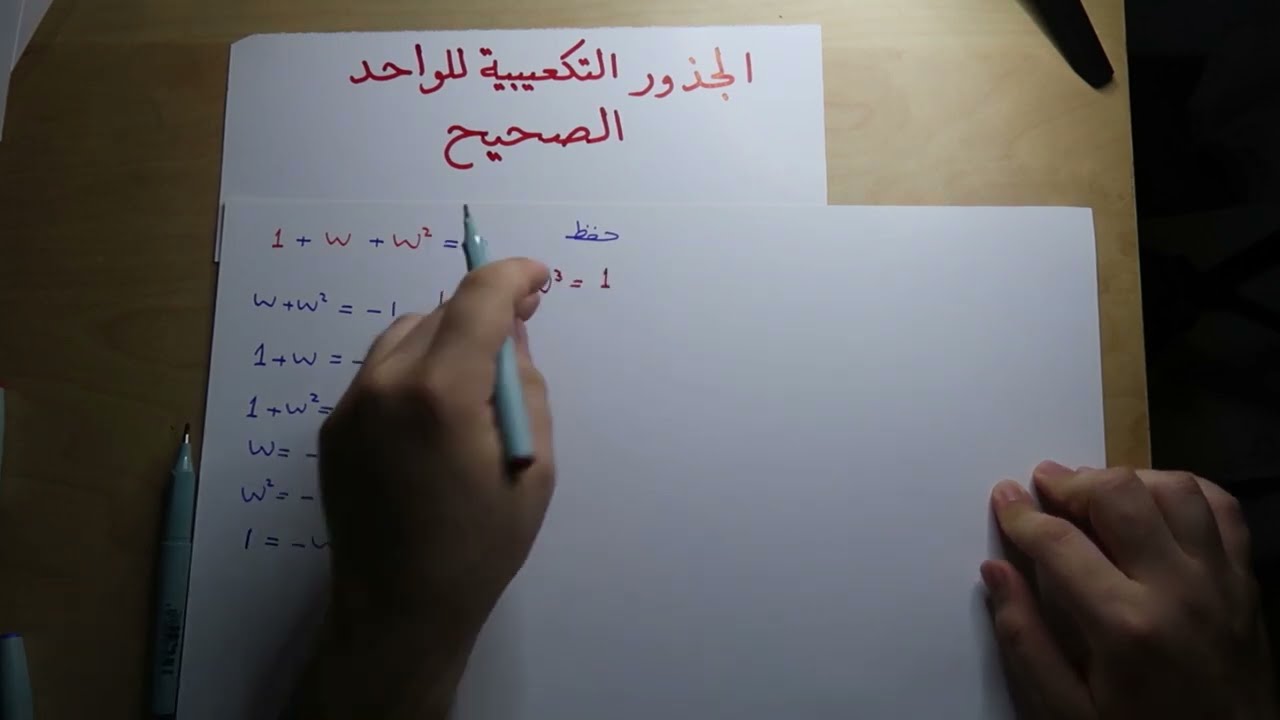 الجذور التكعيبية للواحد
الصحيح
1 + w + w² =
حفظ
³ = 1
w + w² = -1
1 + w = -
1 + w² =
w = -
w² = -
1 = -w